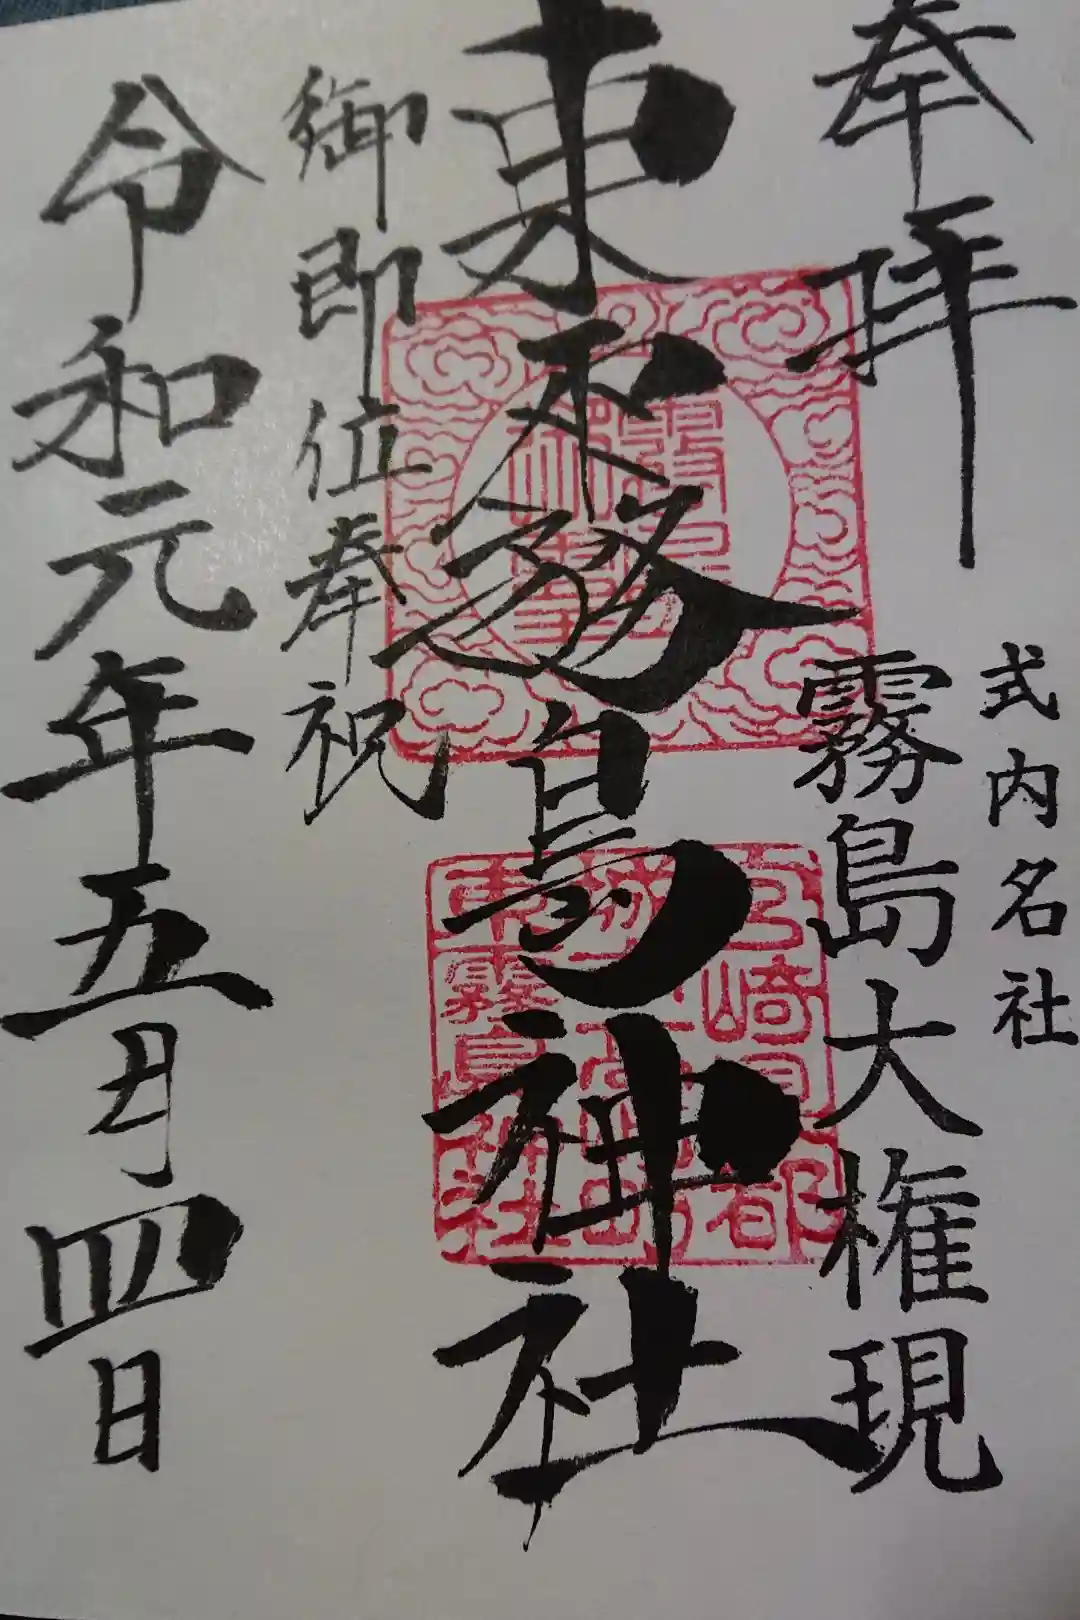 奉拝
式内名社
霧島大権現
東霧島神社
御即位奉祝
令和元年五月四日
宮崎県都
城市高崎町
東霧島神社